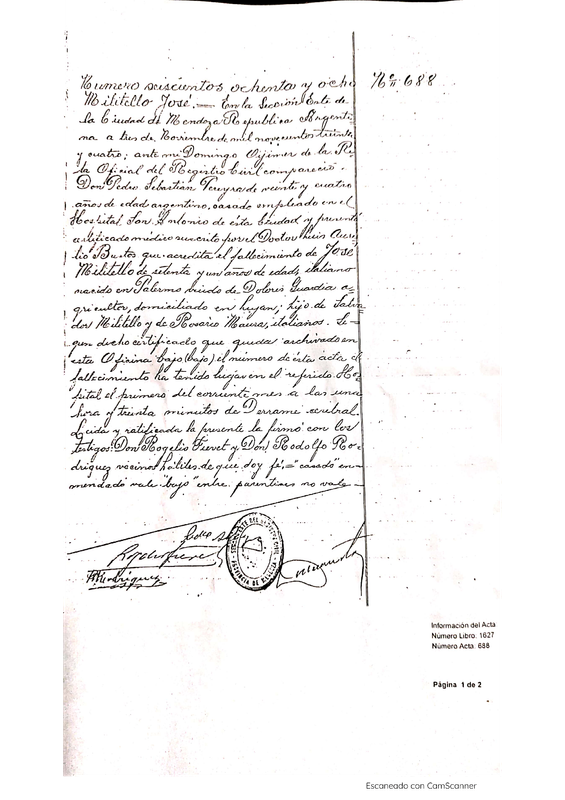 Numero seiscientos ochenta y ocho
Nº 688
Militello José.— En la Sección Este de
la Ciudad de Mendoza Republica Argenti
na a tres de Noviembre de mil novecientos treinta
y cuatro; ante mi Domingo de la
Oficial del Registro Civil compareció.
Don Pedro Sebastian Pereyra de veinte y cuatro
años de edad argentino, casado empleado en el
Hospital San Antonio de esta Ciudad y presenta
certificado médico suscrito por el Doctor Luis Aure
lio Bustos que acredita el fallecimiento de José
Militello de setenta y un años de edad, italiano
nacido en Palermo viudo de Dolores Guardia a-
gricultor, domiciliado en Lujan; hijo de Salva
dor Militello y de Rosario italianos. Se-
gun dicho certificado que queda archivado en
esta Oficina bajo (bajo) el número de esta acta el
fallecimiento ha tenido lugar en el referido Hos
pital el primero del corriente mes a las una
hora y treinta minutos de Derrame cerebral.
Leida y ratificada la presente la firmó con los
testigos: Don Rogelio y Don Rodolfo Ro-
driguez vecinos hábiles de que doy fé,= "casado" en-
mendado vale "bajo" entre parentisis no vale—
Rodriguez
REGISTRO CIVIL
PROVINCIA DE MENDOZA
Información del Acta
Número Libro: 1627
Número Acta: 688
Página 1 de 2
Escaneado con CamScanner